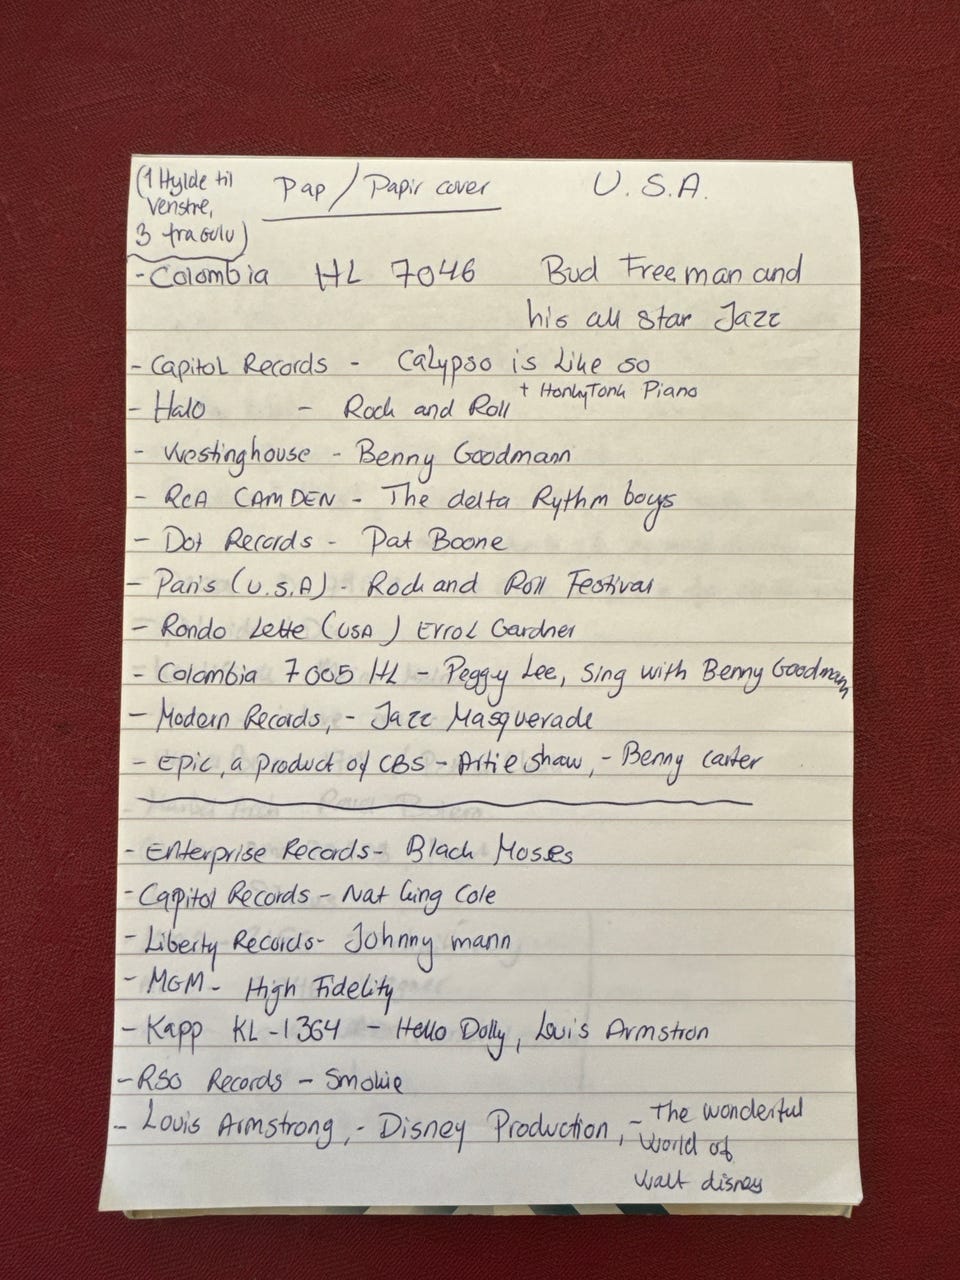 (1 Hylde til
Venstre,
3 fra gulv)
Pap / Papir cover
U.S.A.
- Colombia HL 7046 Bud Freeman and
his all star Jazz
- Capitol Records - Calypso is Like so
- Halo - Rock and Roll + HonkyTonk Piano
- Westinghouse - Benny Goodmann
- RCA CAMDEN - The delta Rythm boys
- Dot Records - Pat Boone
- Paris (U.S.A) - Rock and Roll Festival
- Rondo Lette (USA) Errol Gardner
- Colombia 7005 HL - Peggy Lee, Sing with Benny Goodmann
- Modern Records, - Jazz Masquerade
- Epic, a product of CBS - Artie Shaw, - Benny carter
- Enterprise Records - Black Moses
- Capitol Records - Nat King Cole
- Liberty Records - Johnny mann
- MGM - High Fidelity
- Kapp KL-1364 - Hello Dolly, Louis Armstron
- RSO Records - Smokie
- Louis Armstrong, - Disney Production, - The wonderful
World of
Walt disney